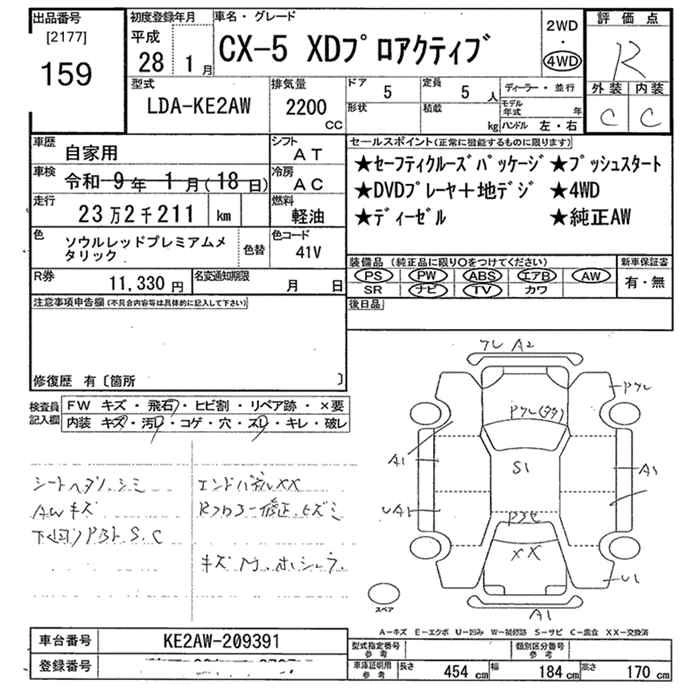 出品番号
[2177]
159
初度登録年月
平成
28 1 月
車名・グレード
CX-5 XDプロアクティブ
2WD
・
4WD
評価点
R
外装 内装
C C
型式
LDA-KE2AW
排気量
2200
CC
ドア 5
定員 5 人
形状
積載 kg
ディーラー・並行
モデル年式 年
ハンドル 左・右
車歴 自家用
シフト AT
車検 令和 9 年 1 月(18日)
冷房 AC
走行 23万2千211 km
燃料 軽油
色 ソウルレッドプレミアムメタリック
色替
色コード 41V
R券 11,330 円
名変通知期限 月 日
セールスポイント(正常に機能するものに限ります)
★セーフティクルーズパッケージ ★プッシュスタート
★DVDプレーヤ+地デジ ★4WD
★ディーゼル ★純正AW
装備品(純正品に限り○をつけてください)
PS PW ABS エアB AW
SR ナビ TV カワ
新車保証書
有・無
後日品
注意事項申告欄(不具合内容等は具体的に記入して下さい)
修復歴 有〔箇所 〕
検査員記入欄
FW キズ・飛石・ヒビ割・リペア跡・×要
内装 キズ・汚レ・コゲ・穴・スレ・キレ・破レ
シートヘタリ、シミ
AWキズ
エンドパネルXX
S.C
キズ
A2
A1
S1
A1
UA1
XX
U1
A1
スペア
A-キズ E-エクボ U-凹み W-補修跡 S-サビ C-腐食 XX-交換済
車台番号 KE2AW-209391
登録番号
型式指定番号 参考
類別区分番号 参考
車庫証明用 参考
長さ 454 cm 幅 184 cm 高さ 170 cm